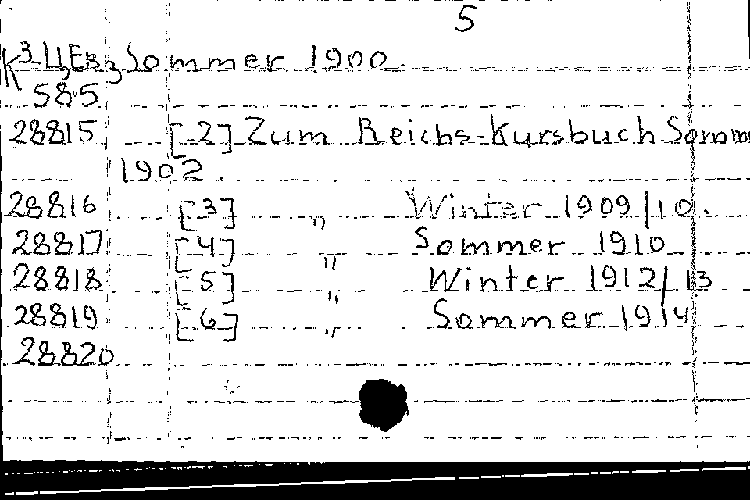 5
Sommer 1900.
585
28815 [2] Zum Reichs-Kursbuch Somm
1902.
28816 [3] " Winter 1909/10.
28817 [4] " Sommer 1910
28818 [5] " Winter 1912/13
28819 [6] " Sommer 1914
28820